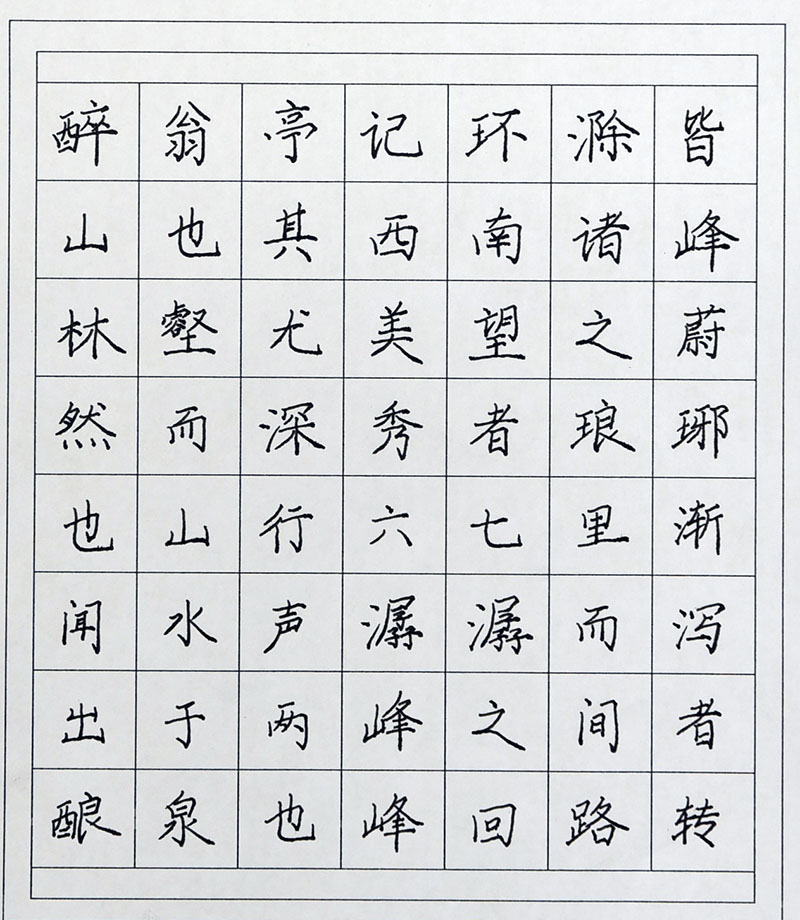 醉翁亭记环滁皆
山也其西南诸峰
林壑尤美望之蔚
然而深秀者琅琊
也山行六七里渐
闻水声潺潺而泻
出于两峰之间者
酿泉也峰回路转